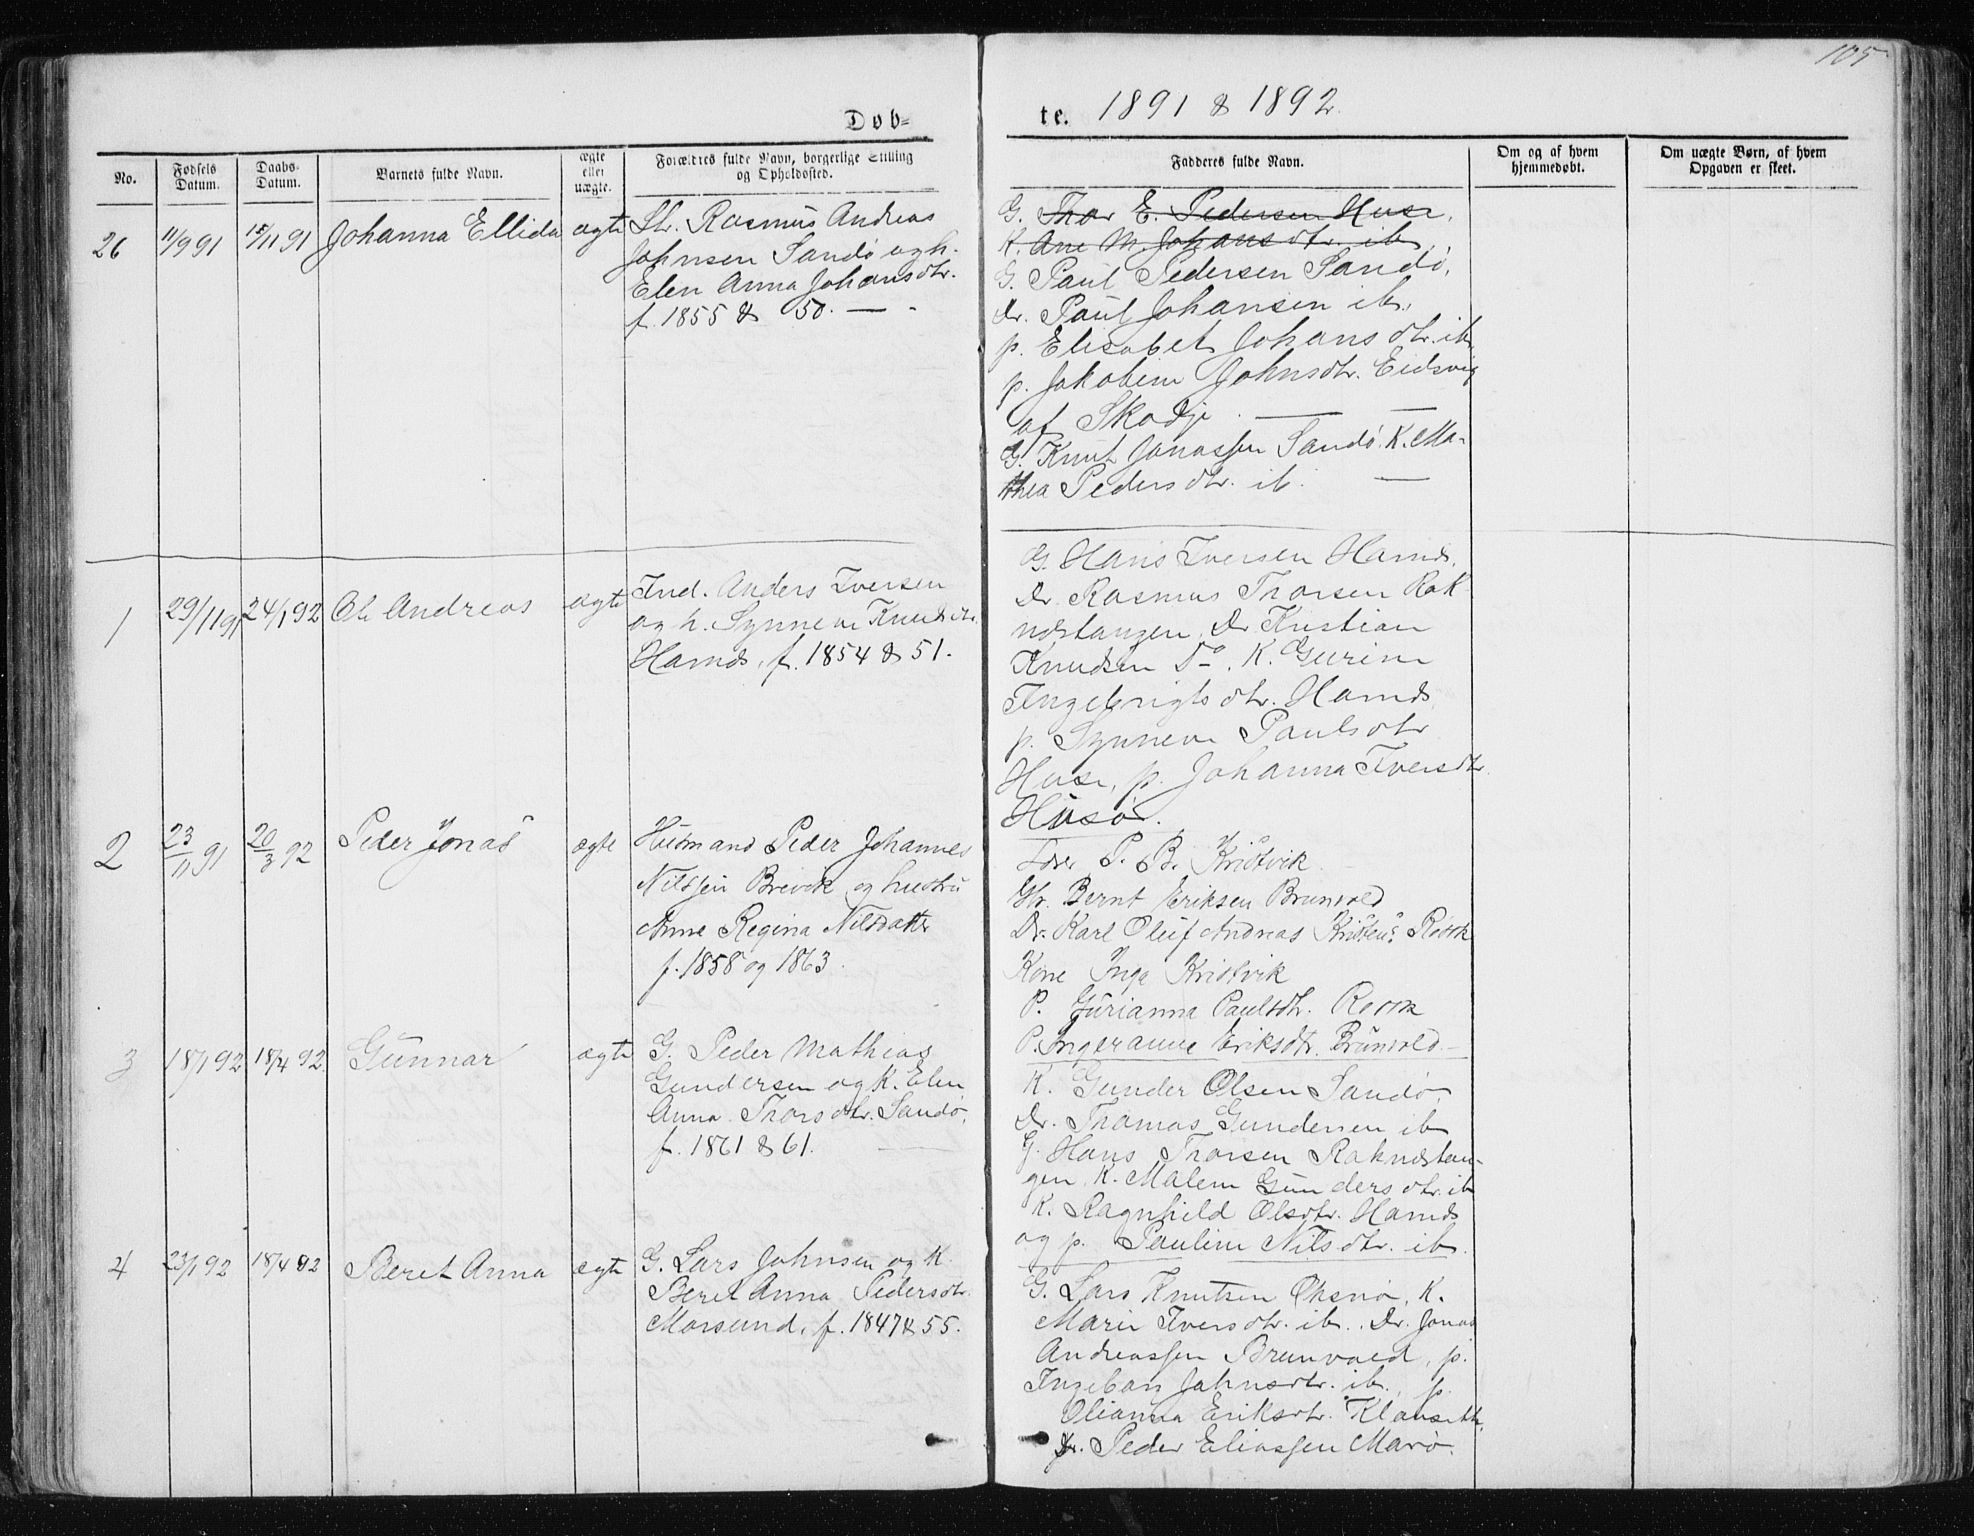 105
Døb=
te. 1891 & 1892.
No.
Fødsels
Datum.
Daabs-
Datum.
Barnets fulde Navn.
ægte
eller
uægte.
Forældres fulde Navn, borgerlige Stilling
og Opholdssted.
Faddernes fulde Navn.
Om og af hvem
hjemmedøbt.
Om uægte Børn, af hvem
Opgaven er skeet.
26 11/9 91 15/11 91 Johanna Ellida ægte
Str. Rasmus Andreas
Johnsen Sandø og h.
Elen Anna Johansdtr.
f. 1855 & 50. —
G. Thor E. Pedersen Huse,
K. Ane M. Johansdtr. ib.,
G. Paul Pedersen Sandø,
Dr. Paul Johansen ib.,
p. Elisabet Johansdtr. ib.
p. Jakobine Johnsdtr. Eidsvig
af Skodje. — —
G. Knut Jonassen Sandø. K. Ma-
thea Pedersdtr. ib. —
1 29/11 91 24/1 92 Ole Andreas ægte
Ind. Anders Iversen
og h. Synneve Knudsdtr.
Harnds, f. 1854 & 51.
G. Hans Iversen Harnds.
Dr. Rasmus Thorsen Rak
ndstangen, Dr. Kristian
Knudsen Do. K. Gurine
Ingebrigtsdtr. Harnds
p. Synneve Paulsdtr
Huse, p. Johanna Iversdtr.
Husø.
2 23/11 91 20/3 92 Peder Jonas ægte
Husmand Peder Johannes
Nilssen Brevik og hustru
Anne Regina Nilsdatter
f. 1858 og 1863.
P. B. Kristvik
Gbr. Bernt Eriksen Brunvold
Dr. Karl Oluf Andreas Kristens. Røsok
Kone Inga Kristvik
P. Gurianna Paulsdtr. Røsok
P. Ingeranne Eriksdtr. Brunvold —
3 18/1 92 18/4 92. Gunnar ægte
G. Peder Mathias
Gundersen og K. Elen
Anna Thorsdtr. Sandø,
f. 1861 & 61. —
K. Gunder Olsen Sandø.
Dr. Thomas Gundersen ib
G. Hans Thorsen Rakndstan-
gen. K. Malene Gundersdtr. ib
K. Ragnhild Olsdtr. Harnds
og p. Pauline Nilsdtr. ib.
4 23/1 92 18/4 92 Beret Anna ægte
G. Lars Johnsen og K.
Beret Anna Pedersdtr.
Morsund, f. 1847 & 55.
G. Lars Knutsen Oksnø, K.
Marie Iversdtr. ib., Dr. Jonas
Andreassen Brunvold, p.
Ingebor Johnsdtr. ib., p.
Olianna Eriksdtr. Klauseth,
Dr. Peder Eliassen Marø.